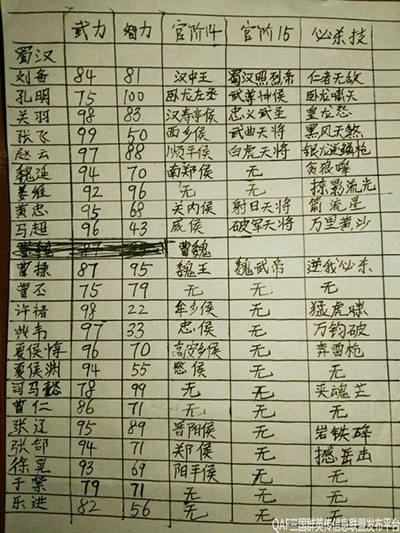 武力 智力 官阶14 官阶15 必杀技
蜀汉
刘备 84 81 汉中王 蜀汉昭烈帝 仁者无敌
孔明 75 100 卧龙左丞 武尊神侯 卧龙啸天
关羽 98 83 汉寿亭侯 忠义武王 皇龙怒
张飞 99 50 西乡侯 武曲天将 黑风天煞
赵云 97 88 顺平侯 白虎天将 银龙逆鳞枪
魏延 94 70 南郑侯 无 贪狼嗥
姜维 92 96 无 无 掠影流光
黄忠 95 68 关内侯 射日天将 箭流星
马超 96 43 威侯 破军天将 万里黄沙
曹魏 87 曹魏
曹操 87 95 魏王 魏武帝 逆我必杀
曹丕 75 79 无 无 无
许褚 98 22 牟乡侯 无 猛虎
典韦 97 33 忠侯 无 万钧破
夏侯惇 96 70 高安乡侯 无 奔雷枪
夏侯渊 94 55 愍侯 无 无
司马懿 78 99 无 无 灭魂芒
曹仁 86 71 无 无 无
张辽 95 89 晋阳侯 无 岩铁碎
张郃 94 71 郑侯 无 撼岳击
徐晃 93 69 阳平侯 无 无
于禁 79 71 无 无 无
乐进 82 56 无 无 无
QAF三国群英传信息联盟发布平台